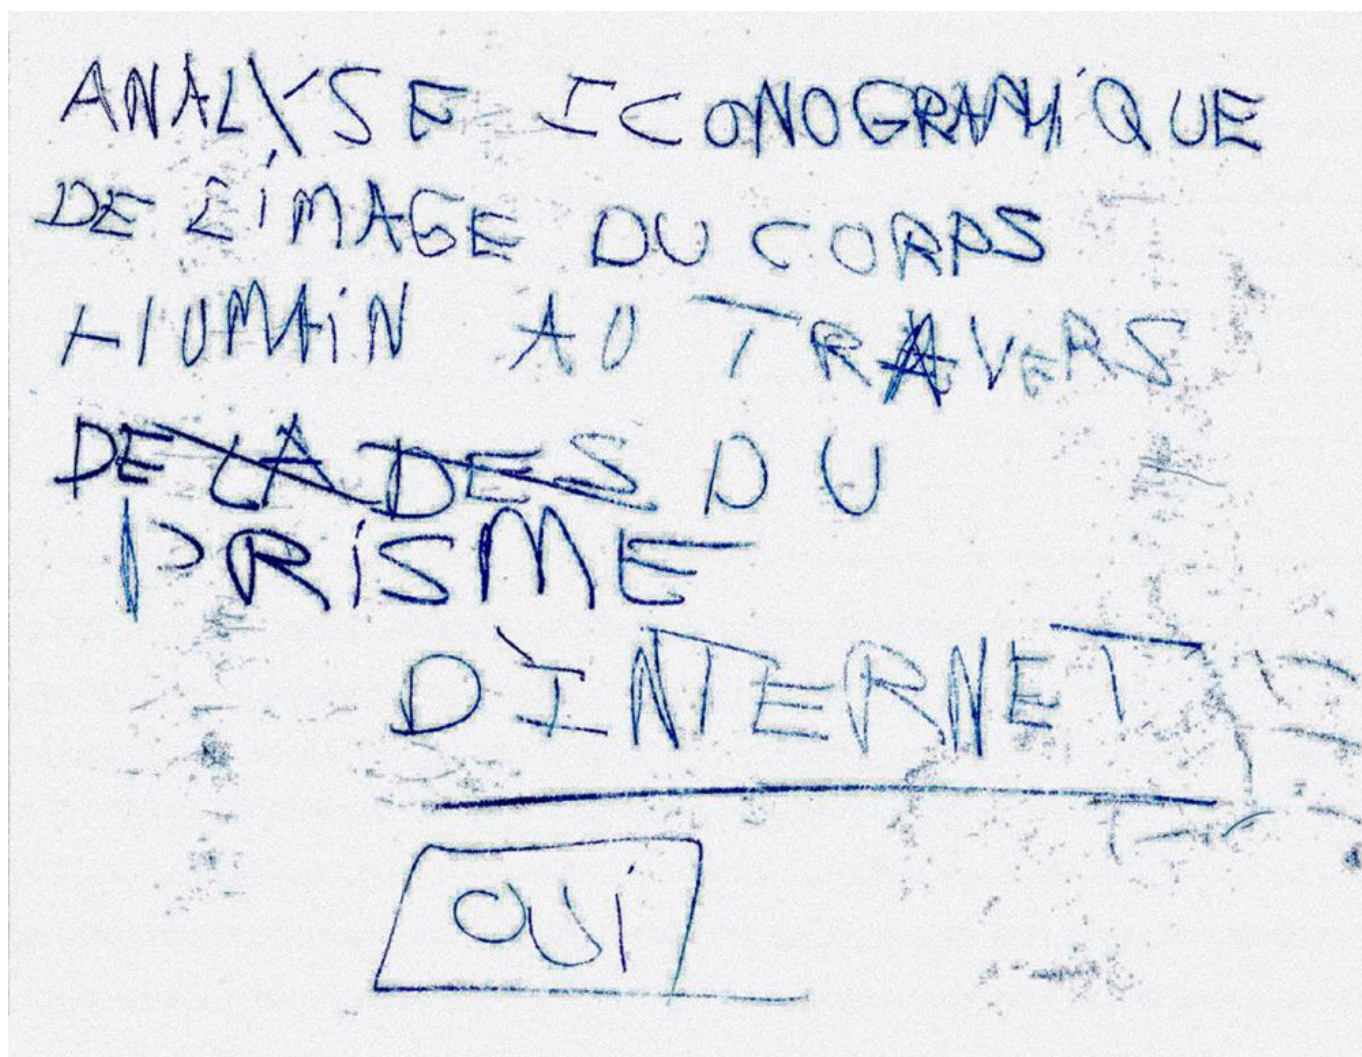 ANALYSE ICONOGRAPHIQUE
DE L'IMAGE DU CORPS
HUMAIN AU TRAVERS
DE LA DES DU
PRISME
D'INTERNET
OUI